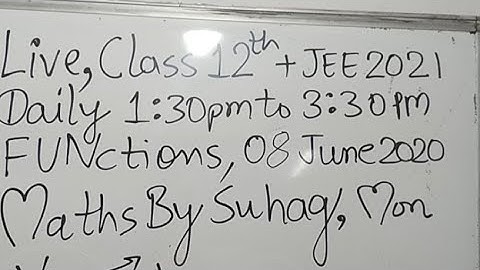 Live, Class 12th + JEE 2021
Daily 1:30pm to 3:30pm
FUNctions, 08 June 2020
Maths By Suhag, Mon